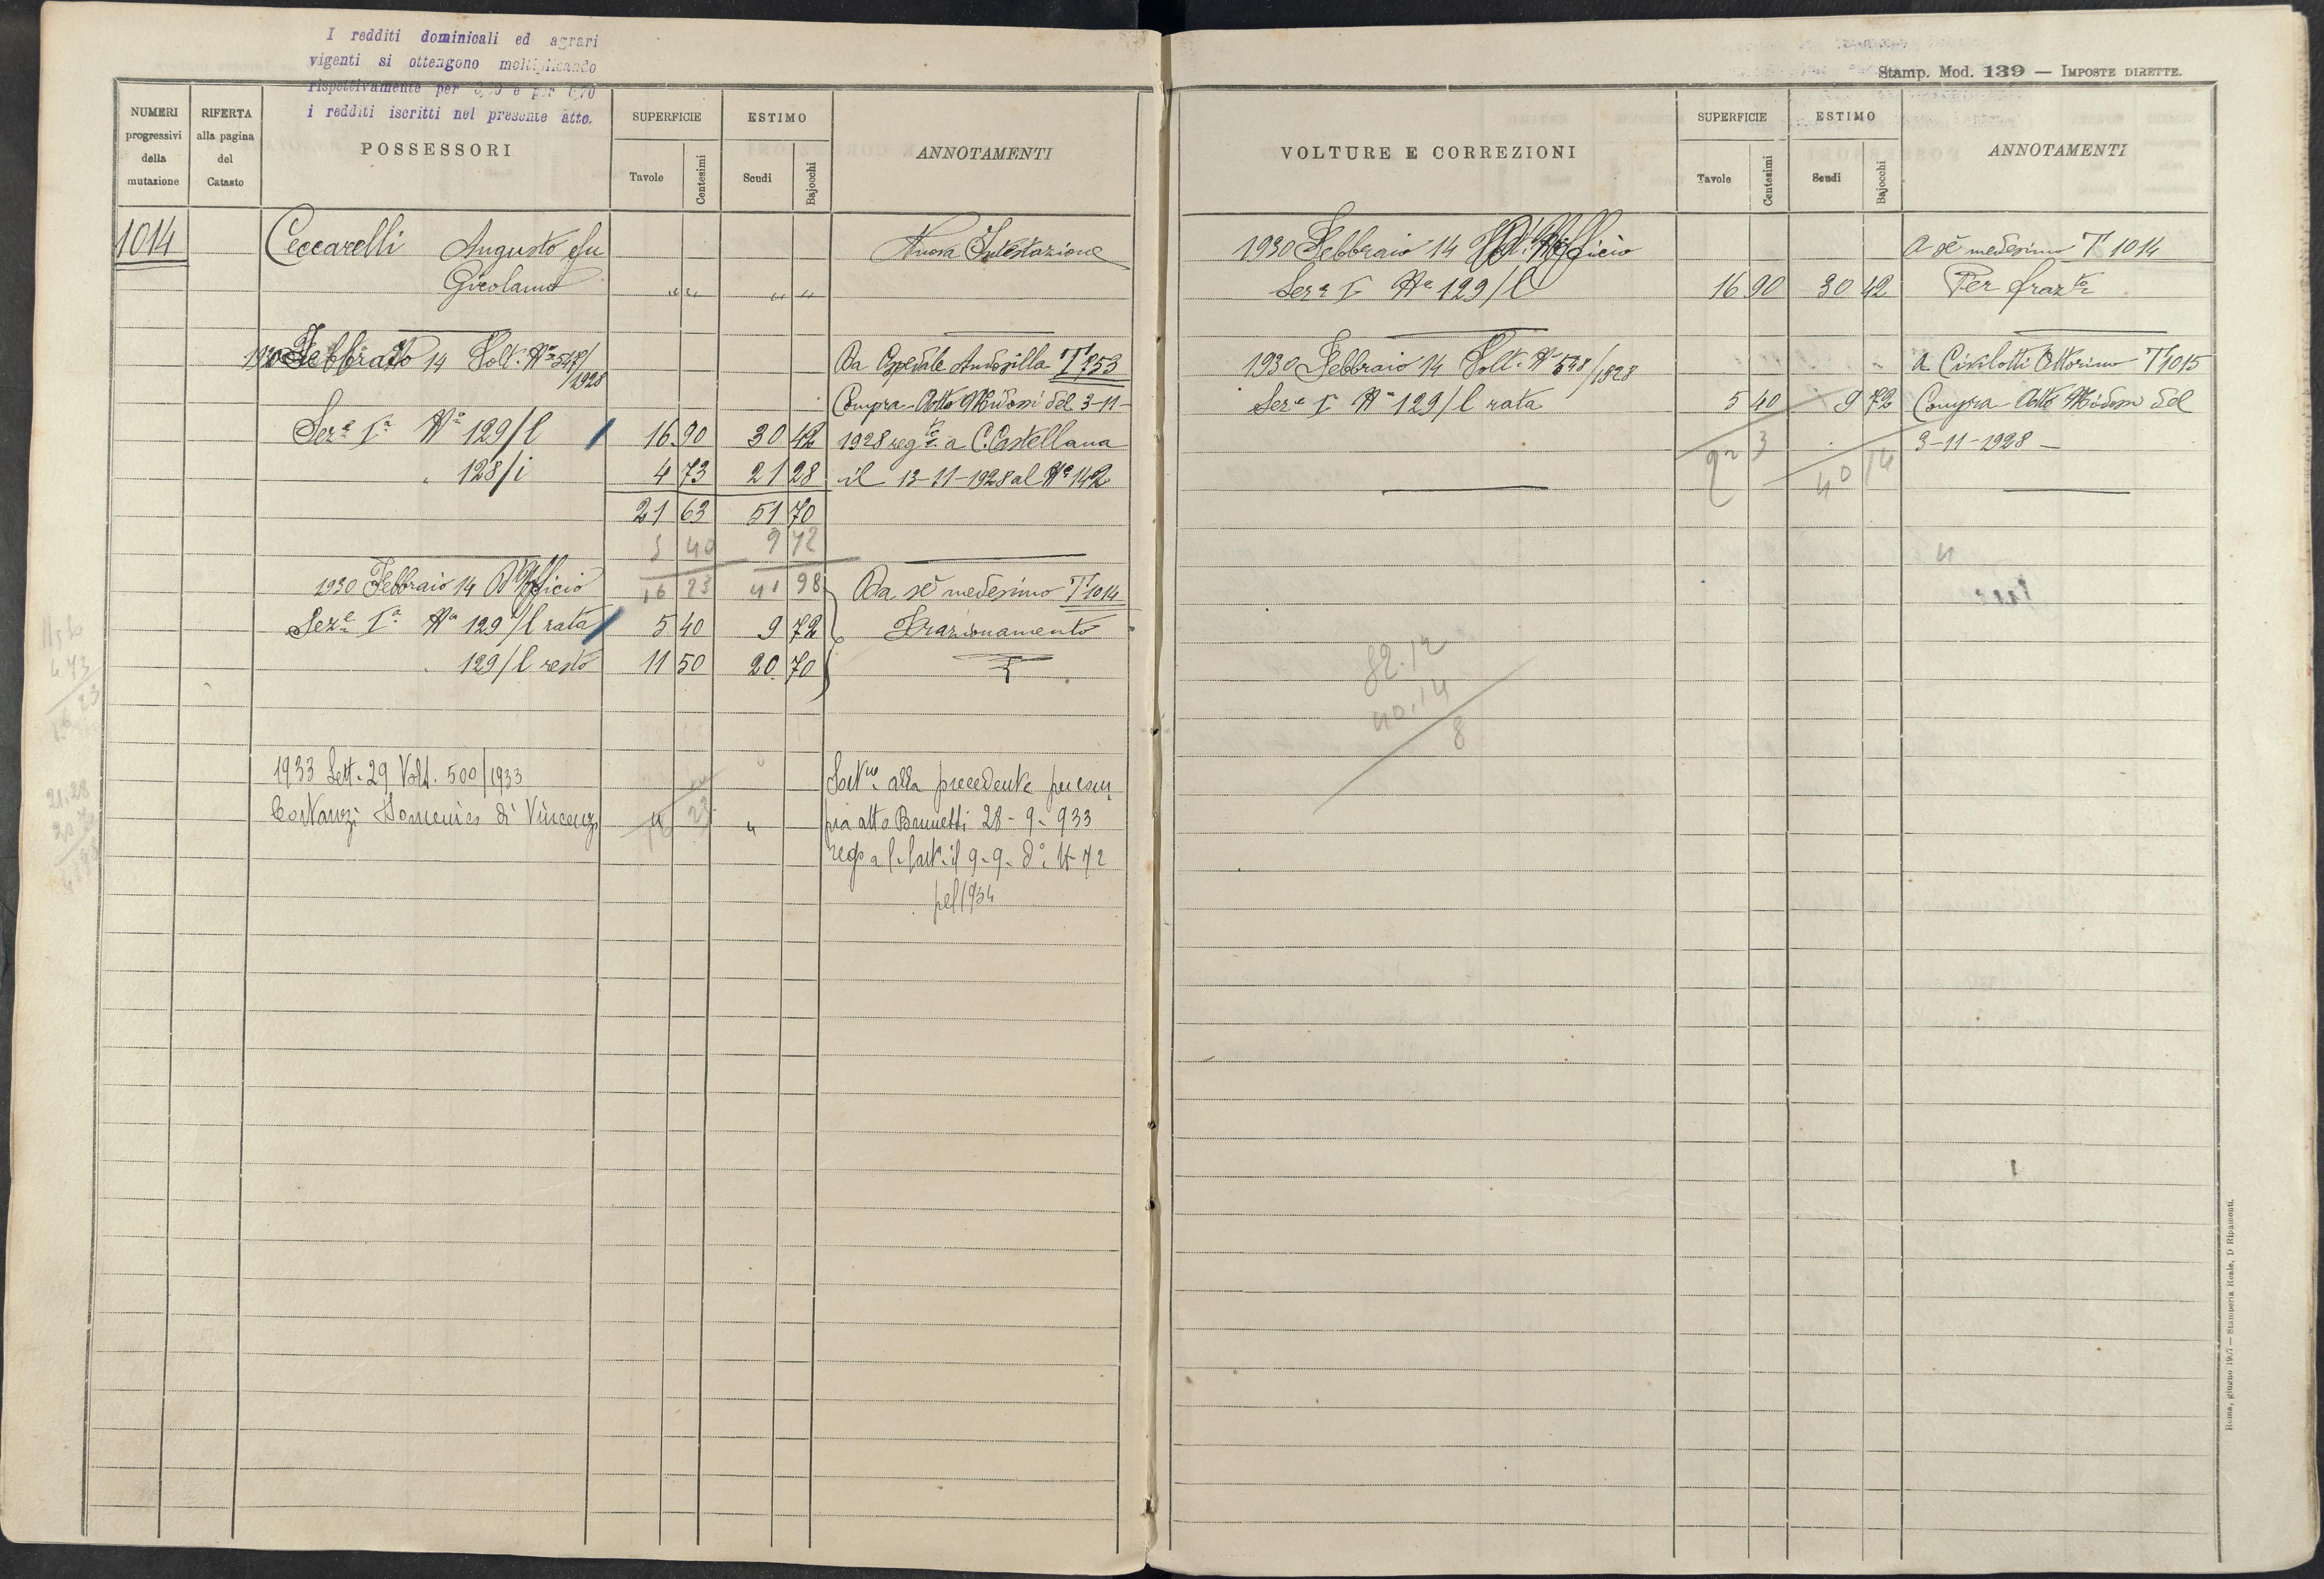 I redditi dominicali ed agrari
vigenti si ottengono moltiplicando
rispettivamente per e per
i redditi iscritti nel presente atto.
NUMERI progressivi della mutazione
RIFERTA alla pagina del Catasto
POSSESSORI
SUPERFICIE
Tavole
Centesimi
ESTIMO
Scudi
Bajocchi
ANNOTAMENTI
1014
Ceccarelli Augusto fu
Nuova Intestazione
Girolamo
" "
" "
1930 Febbraio 14 Volt. Nº 548/1928
Da Ospedale Andosilla T 753
Compra Atto Midossi del 3-11-
Serᵉ Iª Nº 129/l
16.90
30 42
1928 regᵗᵒ a C. Castellana
128/i
4 73
21 28
il 13-11-1928 al Nº 142
21 63
51 70
5 40
9 72
1930 Febbraio 14 D'Ufficio
16 23
41 98
Da sè medesimo T 1014
Serᵉ Iª Nº 129/l rata
5 40
9 72
Frazionamento
129/l resto
11 50
20.70
4 73
16 23
21.28
1933 Sett. 29 Volt. 500/1933
alla precedente per com
Costanzi Domenica di Vincenzo
"
16 23
"
pra atto Brunetti 28-9-933
9-9-
pel 1934
Stamp. Mod. 139 — IMPOSTE DIRETTE.
VOLTURE E CORREZIONI
SUPERFICIE
Tavole
Centesimi
ESTIMO
Scudi
Bajocchi
ANNOTAMENTI
1930 Febbraio 14 D'Ufficio
A sè medesimo T 1014
Serᵉ Iª Nº 129/l
16 90
30 42
Per frazᵗᵒ
1930 Febbraio 14 Volt. Nº 548/1928
A Civilotti Ottorino T 1015
Serᵉ Iª Nº 129/l rata
5 40
9 72
Compra Atto Midossi del
3-11-1928 —
40 14
82.12
40.14
8
Roma, giugno 1927 — Stamperia Reale, D Ripamonti.